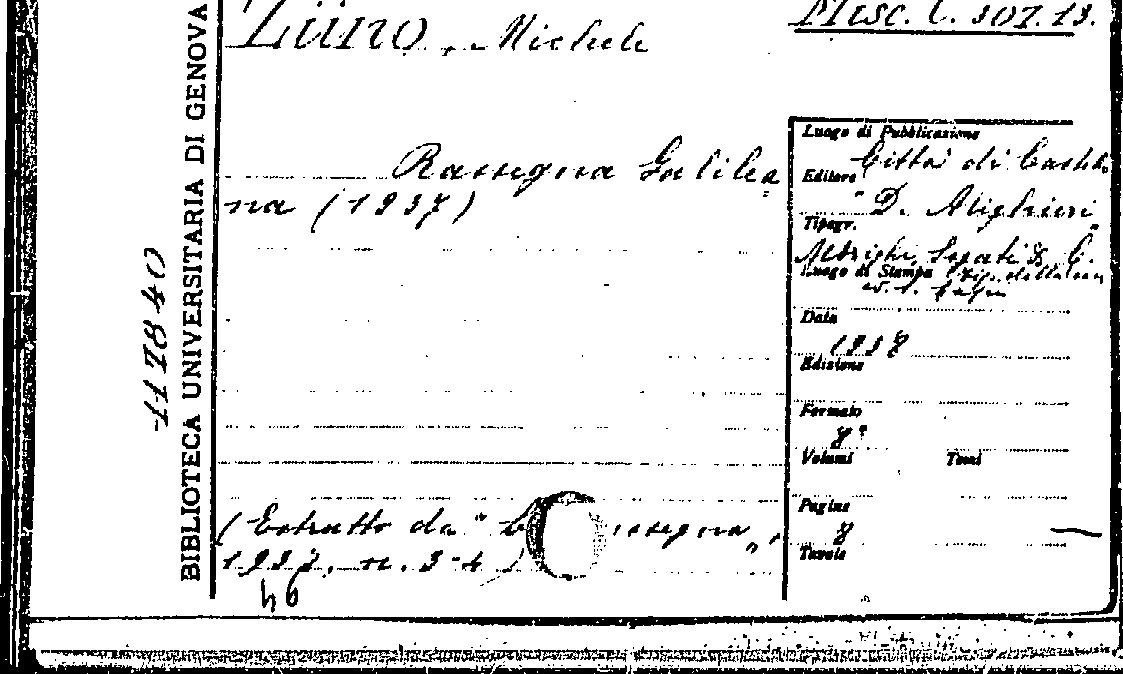 Misc. C. 307.13.
Züno, Michele
BIBLIOTECA UNIVERSITARIA DI GENOVA
117840
Rassegna Galilea=
na (1937)
Luogo di Pubblicazione
Città di Castello
Editore
"D. Alighieri"
Tipogr.
Albrighi, Segati & C.
Luogo di Stampa
Data
1938
Edizione
Formato
8°
Volumi Tomi
Pagine
8
Tavole
(Estratto da "La Rassegna",
1937, n. 3-4)
46